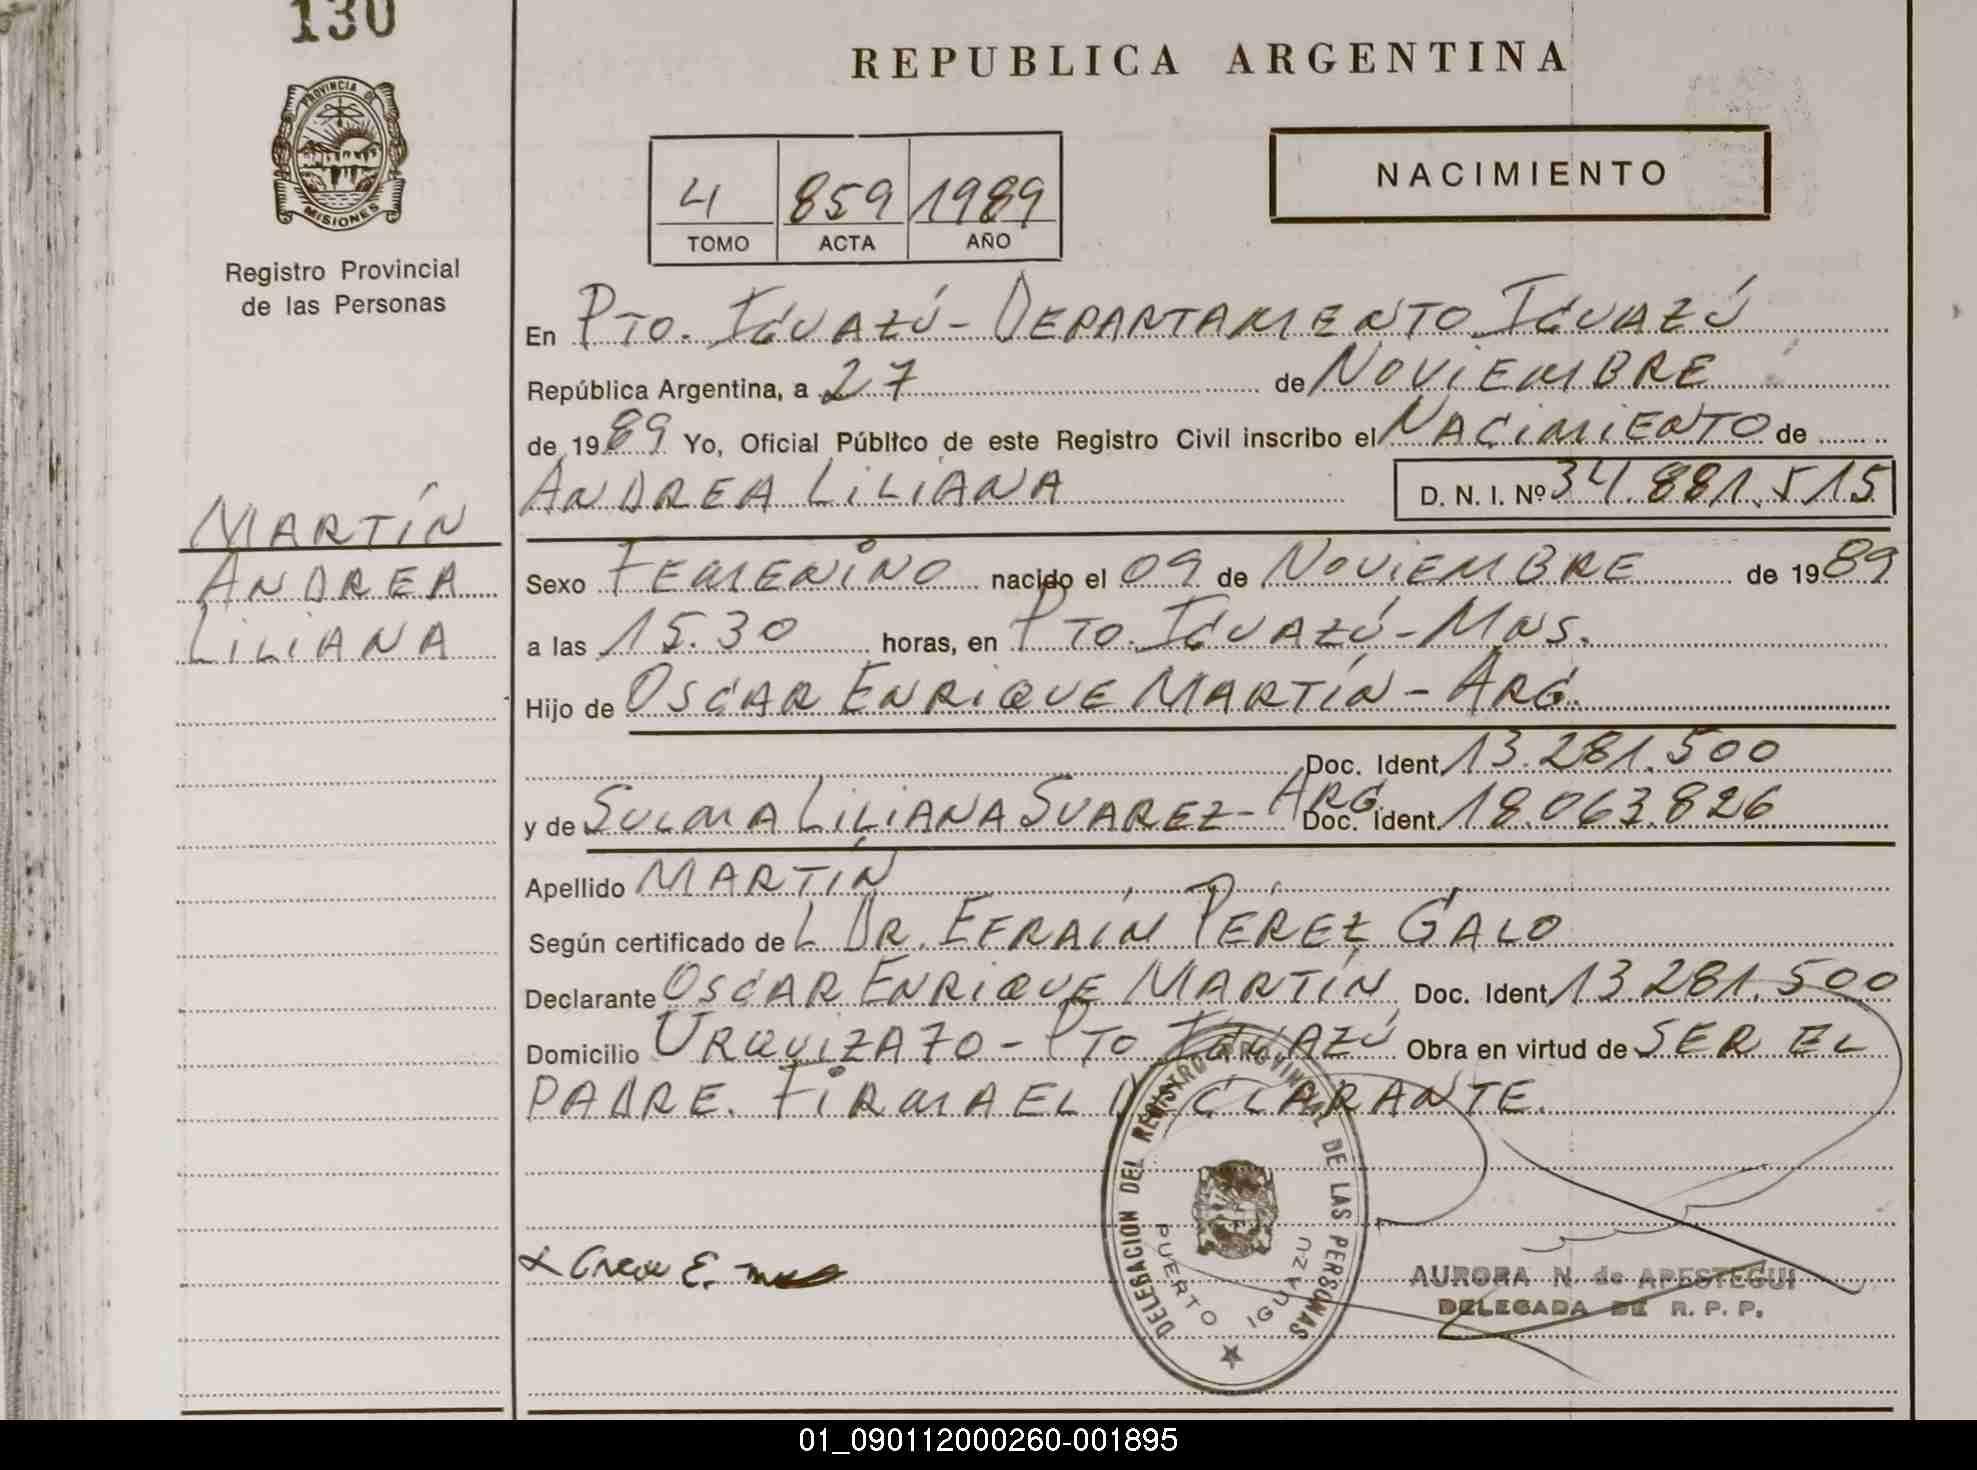 130
REPUBLICA ARGENTINA
PROVINCIA DE
MISIONES
Registro Provincial
de las Personas
4 859 1989
TOMO ACTA AÑO
NACIMIENTO
En PTO. IGUAZÚ - DEPARTAMENTO IGUAZÚ
República Argentina, a 27 de NOVIEMBRE
de 1989 Yo, Oficial Público de este Registro Civil inscribo el NACIMIENTO de
ANDREA LILIANA D. N. I. Nº 34.881.515
MARTÍN
ANDREA
LILIANA
Sexo FEMENINO nacido el 09 de NOVIEMBRE de 1989
a las 15.30 horas, en PTO. IGUAZÚ - MNS.
Hijo de OSCAR ENRIQUE MARTÍN - ARG.
Doc. Ident. 13.281.500
y de SULMA LILIANA SUAREZ - ARG. Doc. Ident. 18.063.826
Apellido MARTÍN
Según certificado de L DR. EFRAÍN PÉREZ GALO
Declarante OSCAR ENRIQUE MARTÍN Doc. Ident. 13.281.500
Domicilio URQUIZA 70 - PTO IGUAZÚ Obra en virtud de SER EL
PADRE. FIRMA EL DECLARANTE.
DELEGACION DEL REGISTRO PROVINCIAL DE LAS PERSONAS
PUERTO IGUAZU
AURORA N. de APESTEGUI
DELEGADA DE R. P. P.
01_090112000260-001895